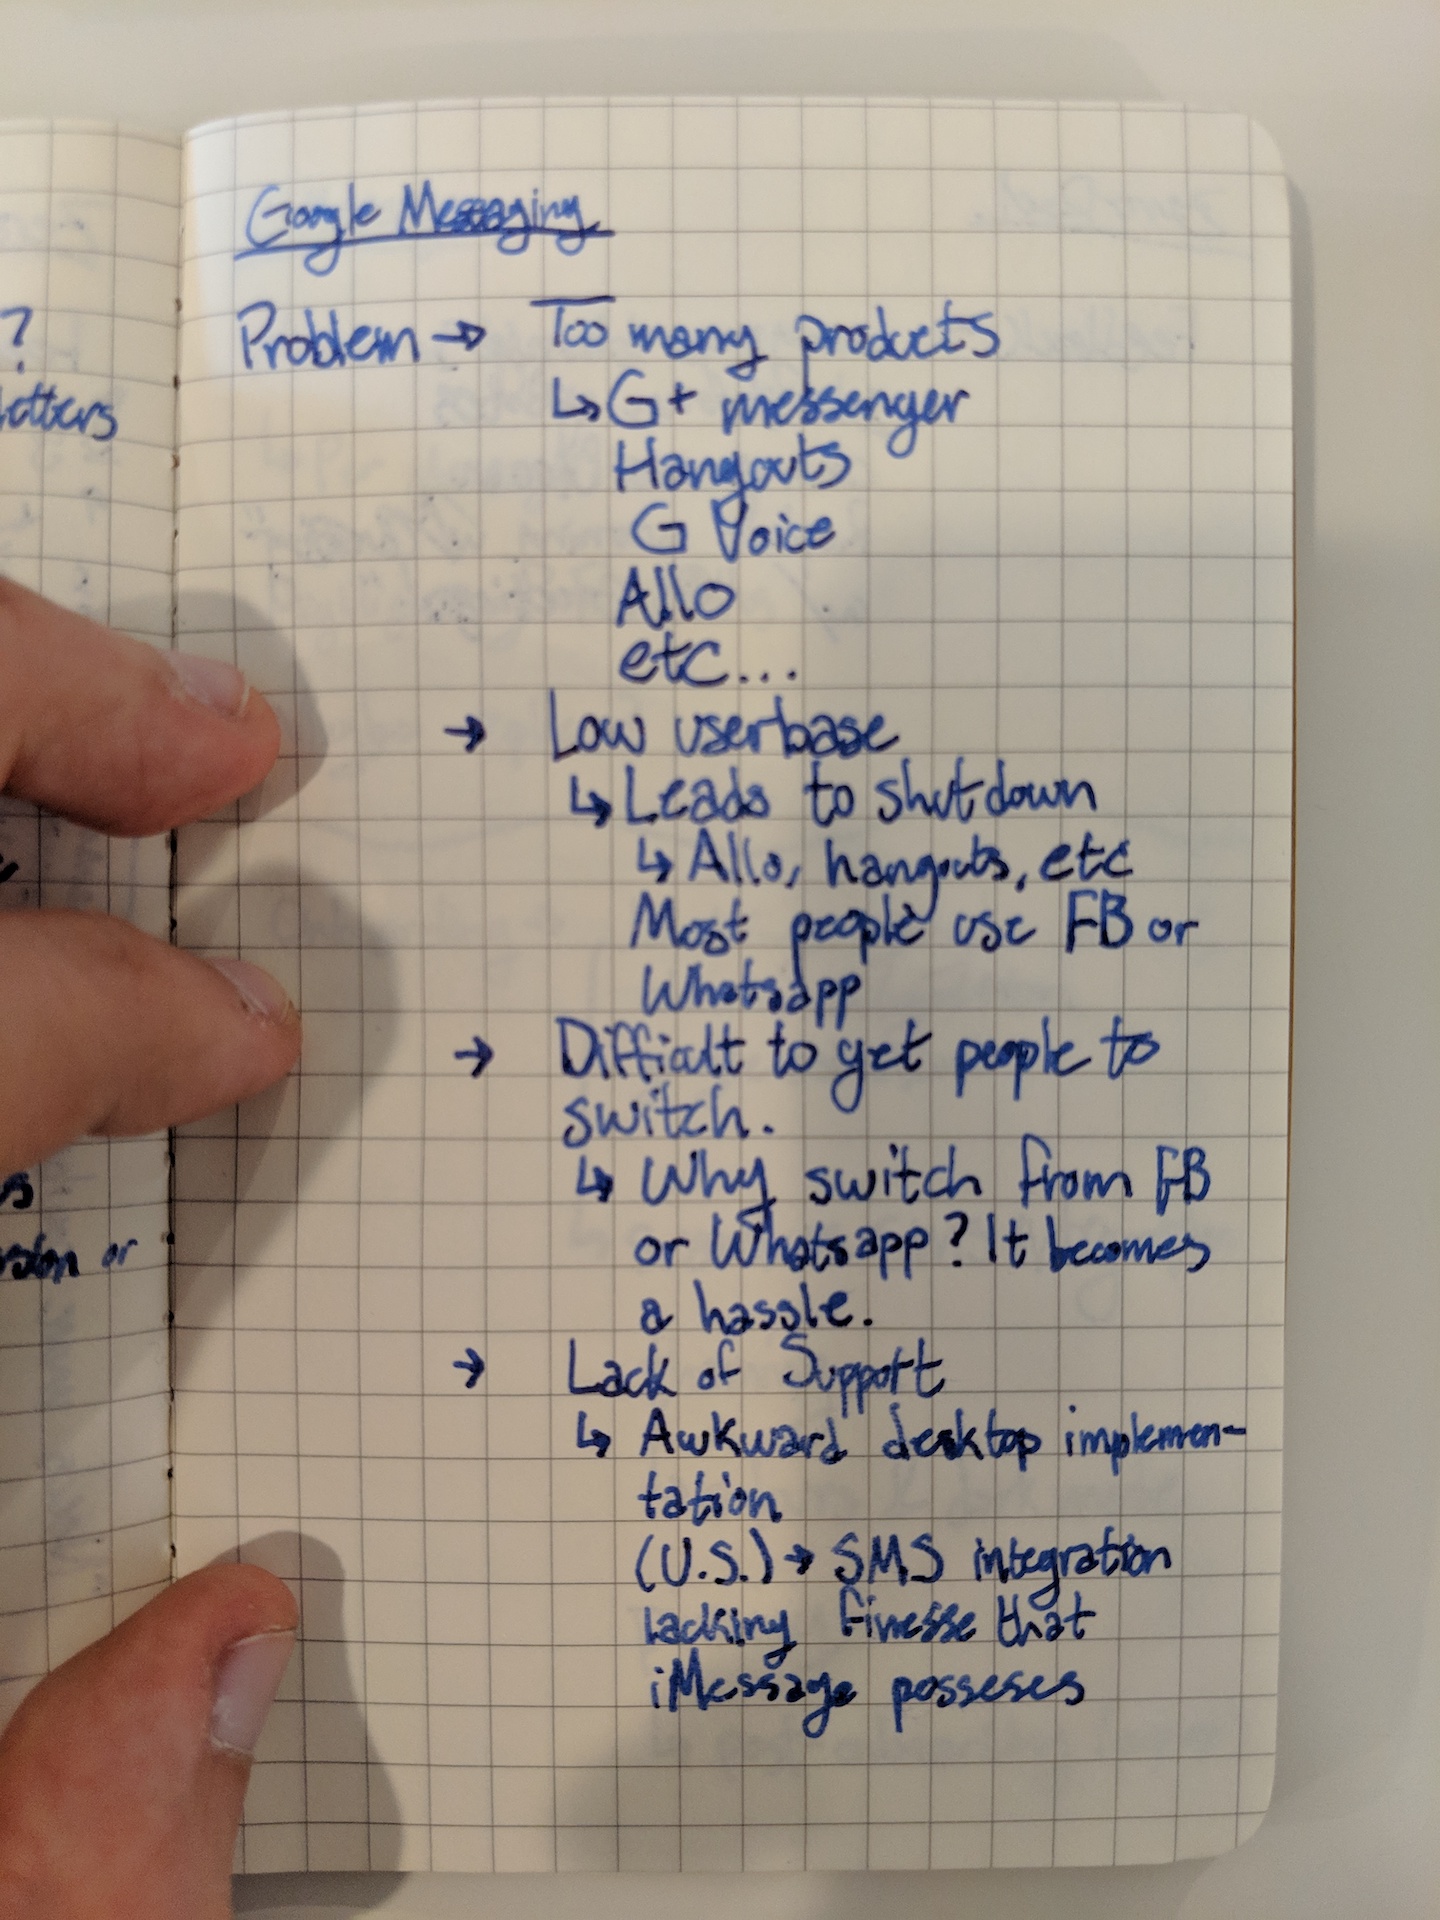 ?
etters
s
or
Google Messaging
Problem → Too many products
↳ G+ messenger
Hangouts
G Voice
Allo
etc...
→ Low userbase
↳ Leads to shutdown
↳ Allo, hangouts, etc
Most people use FB or
Whatsapp
→ Difficult to get people to
switch.
↳ Why switch from FB
or Whatsapp? It becomes
a hassle.
→ Lack of Support
↳ Awkward desktop implemen-
tation
(U.S.) → SMS integration
lacking finesse that
iMessage posseses